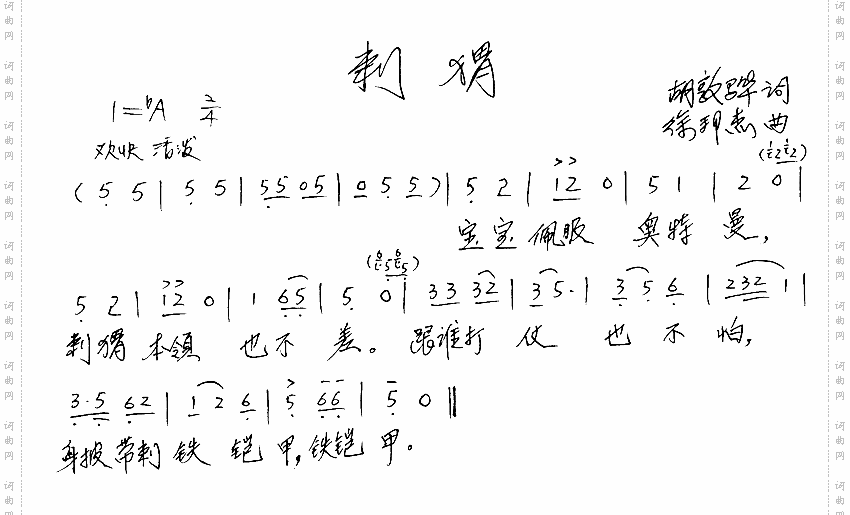 刺猬
胡敦骅词
1=♭A 2/4
徐邦杰曲
欢快 活泼
( 5 5 | 5 5 | 5 5 0 5 | 0 5 5 ) | 5 2 | 1 2 0 | 5 1 | 2 0 |
宝宝佩服 奥特曼,
5 2 | 1 2 0 | 1 6 5 | 5 0 | 3 3 3 2 | 3 5· | 3 5 6 | 2 3 2 1 |
刺猬本领 也不差。跟谁打仗 也不怕,
3·5 6 2 | 1 2 6 | 5 6 6 | 5 0 ‖
身披带刺铁铠甲,铁铠甲。
词曲网